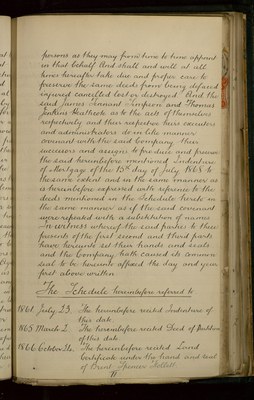 persons as they may from time to time appoint
in that behalf And shall and will at all
times hereafter take due and proper care to
preserve the same deeds from being defaced
injured cancelled lost or destroyed And the
said James Tennant Simpson and Thomas
Jenkins Heathcote as to the acts of themselves
respectively and their respective heirs executors
and administrators do in like manner
covenant with the said Company their
successors and assigns to produce and preserve
the said hereinbefore mentioned Indenture
of Mortgage of the 15th day of July 1863 to
the same extent and in the same manner as
is hereinbefore expressed with reference to the
deeds mentioned in the Schedule hereto in
the same manner as if the said covenant
were repeated with a substitution of names
In witness whereof the said parties to these
presents of the first second and third parts
have hereunto set their hands and seals
and the Company hath caused its common
seal to be hereunto affixed the day and year
first above written
The Schedule hereinbefore referred to
1861 July 23. The hereinbefore recited Indenture of
this date
1865 March 2 The hereinbefore recited Deed of
of this date.
1866 October 24. The hereinbefore recited Land
Certificate under the hand and seal
of Brent Spencer Follett